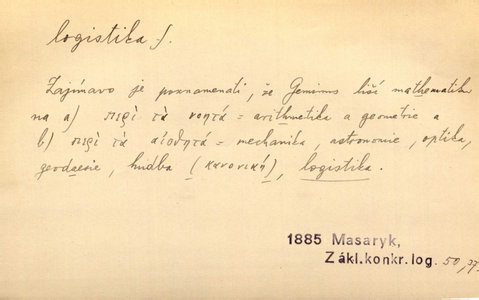 logistika f.
Zajímavo je poznamenati, že Geminus liší mathematiku
na a) περὶ τὰ νοητά = arithmetika a geometrie a
b) περὶ τὰ αἰσθητά = mechanika, astronomie, optika,
geodaesie, hudba (κανονική), logistika.
1885 Masaryk,
Zákl.konkr.log. 50, 77